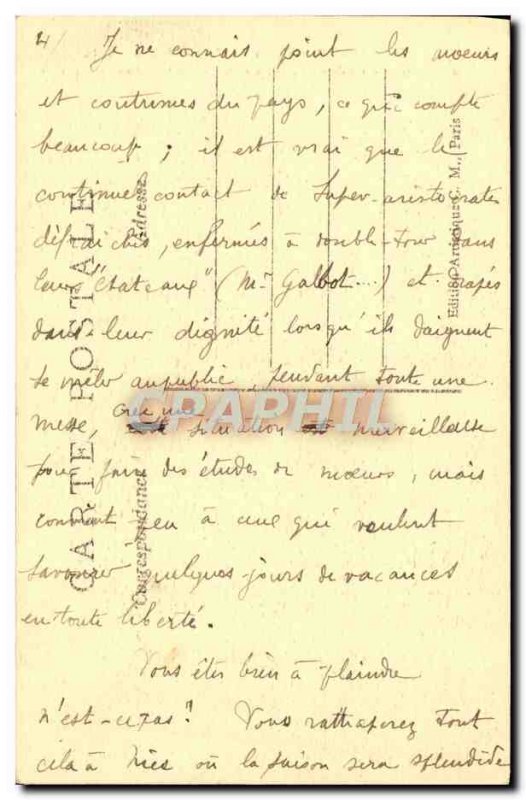 4/ Je ne connais point les moeurs
et coutumes du pays, ce qui compte
beaucoup ; il est vrai que le
continuel contact de super-aristocrates
défraichis, enfermés à double-tour dans
leurs "Chateaux" (Mr Galbot....) et drapés
dans leur dignité lorsqu'ils daignent
se mêler au public pendant toute une
messe, crée une situation merveilleuse
pour faire des études de moeurs, mais
convient peu à ceux qui veulent
savourer quelques jours de vacances
en toute liberté.
Vous êtes bien à plaindre
n'est-ce pas ! Vous rattraperez tout
cela à Nice où la saison sera splendide
CARTE POSTALE
Correspondance
Adresse
Editions Artistiques C. M., Paris
CPAPHIL